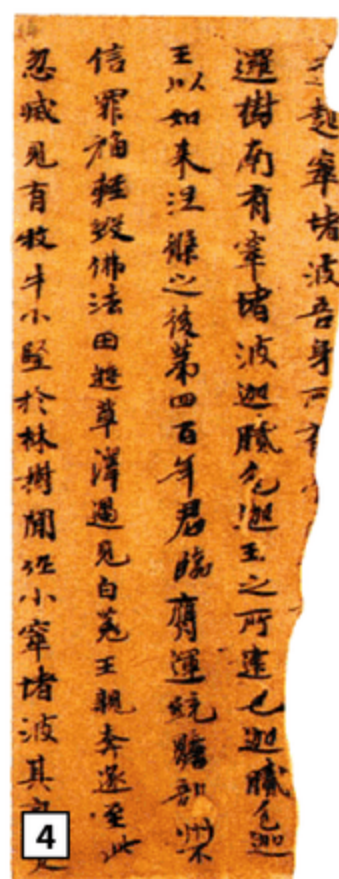 起窣堵波吾身所
邏樹南有窣堵波迦膩色迦王之所建也迦膩色迦
王以如来涅槃之後第四百年君臨膺運統贍部洲不
信罪福輕毀佛法田遊草澤遇見白菟王親奔逐至此
忽滅見有牧牛小竪於林樹間作小窣堵波其
4